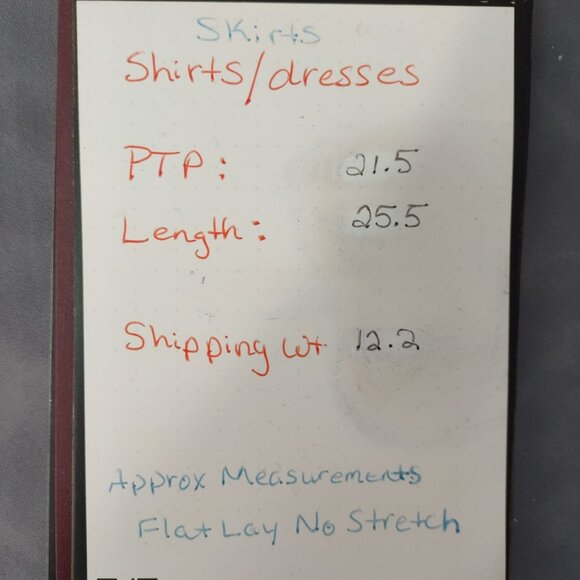 Skirts
Shirts/dresses
PTP: 21.5
Length: 25.5
Shipping wt 12.2
Approx Measurements
Flat Lay No Stretch